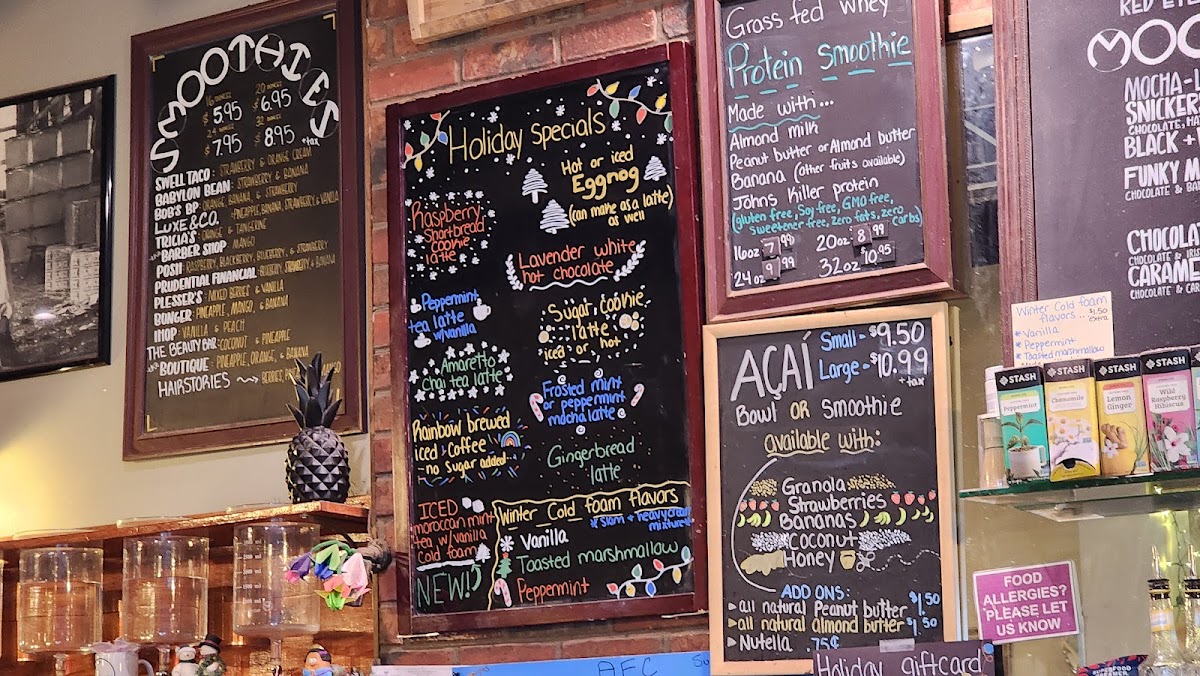 SMOOTHIES
16 OUNCES 20 OUNCES
$5.95 $6.95
24 OUNCES 32 OUNCES
$7.95 $8.95 +tax
SWELL TACO: STRAWBERRY & ORANGE CREAM
BABYLON BEAN: STRAWBERRY & BANANA
BOB'S BP: ORANGE, BANANA, & STRAWBERRY
LUXE & CO.: PINEAPPLE, BANANA, STRAWBERRY & VANILLA
TRICIA'S: ORANGE & TANGERINE
BARBER SHOP: MANGO
POSH: RASPBERRY, BLACKBERRY, BLUEBERRY, & STRAWBERRY
PRUDENTIAL FINANCIAL: BLUEBERRY, STRAWBERRY & BANANA
PLESSER'S: MIXED BERRIES & VANILLA
BUNGER: PINEAPPLE, MANGO, & BANANA
IHOP: VANILLA & PEACH
THE BEAUTY BAR: COCONUT & PINEAPPLE
BOUTIQUE: PINEAPPLE, ORANGE, & BANANA
HAIRSTORIES
Holiday Specials
Hot or iced
Eggnog
(can make as a latte)
as well
Raspberry
Shortbread
cookie
latte
Lavender white
hot chocolate
Peppermint
tea latte
w/vanilla
Sugar cookie
latte
iced or hot
Amaretto
chai tea latte
Frosted mint
or peppermint
mocha latte
Rainbow brewed
iced coffee
no sugar added
Gingerbread
latte
ICED
moroccan mint
tea w/ vanilla
cold foam
NEW!
Winter Cold foam flavors
*skim + heavy cream
mixture
Vanilla
Toasted marshmallow
Peppermint
Grass fed whey
Protein smoothie
Made with...
Almond milk
Peanut butter or Almond butter
Banana (other fruits available)
Johns Killer protein
(gluten free, Soy free, GMO free,
sweetener free, zero fats, zero carbs)
16oz 7.99 20oz 8.99
24oz 9.99 32oz 10.95
AÇAÍ
Small - $9.50
Large - $10.99
+tax
Bowl OR Smoothie
available with:
Granola
Strawberries
Bananas
Coconut
Honey
ADD ONS:
all natural Peanut butter $1.50
all natural almond butter $1.50
Nutella .75¢
Holiday giftcard
AFC
RED EYE
MOC
MOCHA-
SNICKERS
CHOCOLATE, HA
BLACK +
FUNKY M
CHOCOLATE & BA
CHOCOLAT
CHOCOLATE & IRIS
CARAME
CHOCOLATE & CAR
Winter Cold foam
flavors.. $1.50
extra
*Vanilla
*Peppermint
*Toasted marshmallow
STASH
Peppermint
STASH
Chamomile
STASH
Lemon
Ginger
STASH
Wild
Raspberry
Hibiscus
FOOD
ALLERGIES?
PLEASE LET
US KNOW